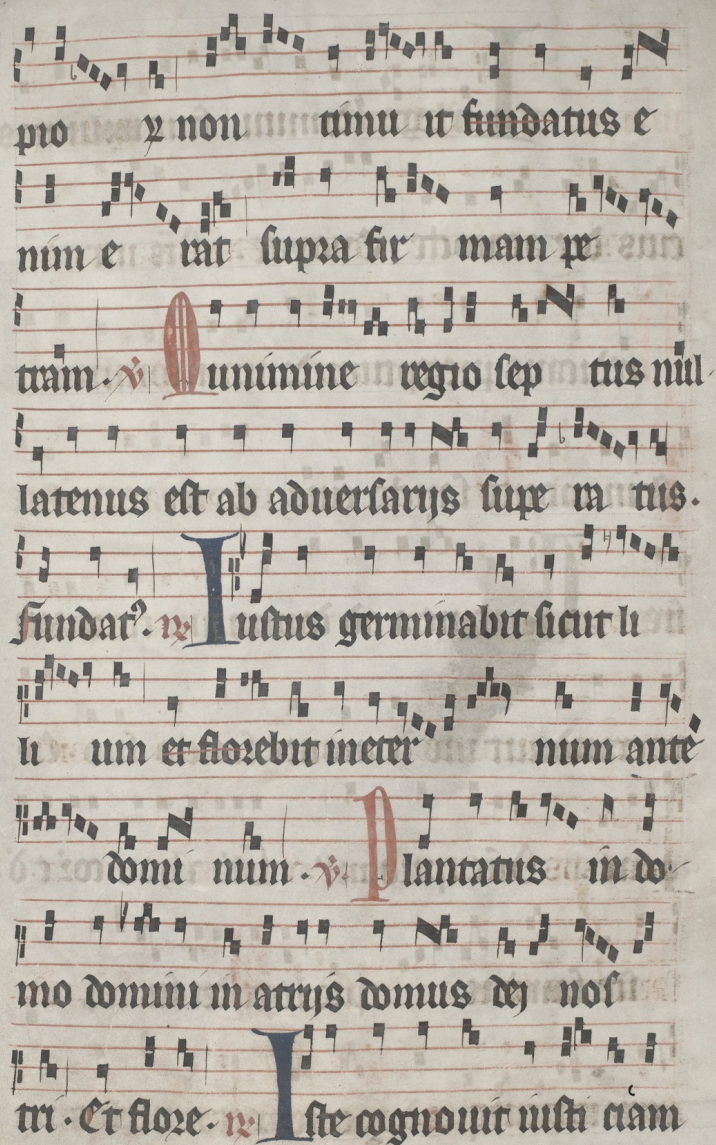 pio ꝛ non timu it fundatus e
nim e rat supra fir mam pe
tram. ℣ Munimine regio sep tus nul
latenus est ab aduersarijs supe ra tus.
fundatꝰ. ℟ Iustus germinabit sicut li
li um et florebit in eter num ante
domi num. ℣. Plantatus in do
mo domini in atrijs domus dej nos
tri. Et flore. ℟ Iste cognouit iusti ciam